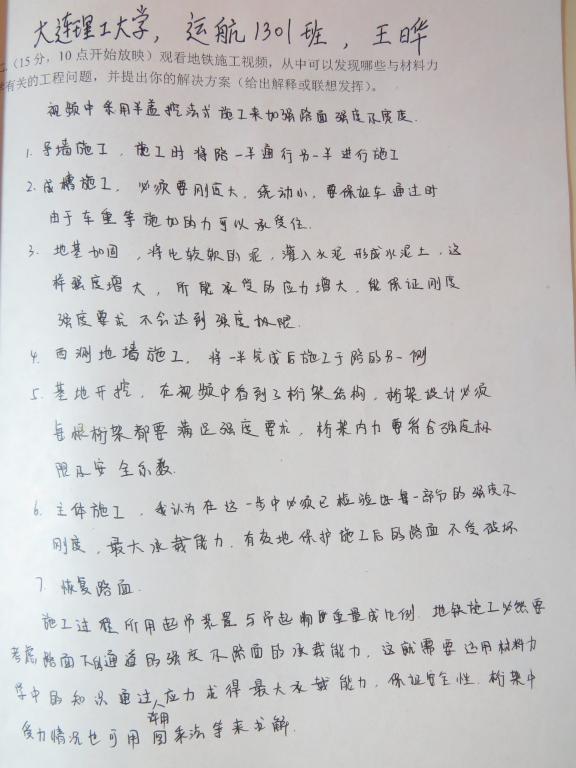 大连理工大学，运航1301班，王晔
二（15分，10点开始放映）观看地铁施工视频，从中可以发现哪些与材料力
学有关的工程问题，并提出你的解决方案（给出解释或联想发挥）。
视频中采用半盖挖法式施工来加强路面强度和宽度.
1. 导墙施工，施工时将路一半通行另一半进行施工
2. 成槽施工，必须要刚度大，绕动小，要保证车通过时
由于车重等施加的力可以承受住.
3. 地基加固，将比较软的泥，灌入水泥形成水泥土，这
样强度增大，所能承受的应力增大，能保证刚度
强度要求不会达到强度极限.
4. 西测地墙施工，将一半完成后施工于路的另一侧
5. 基地开挖，在视频中看到了桁架结构，桁架设计必须
每根桁架都要满足强度要求，桁架内力要符合强度极
限及安全系数.
6. 主体施工，我认为在这一步中必须已检验出每一部分的强度和
刚度，最大承载能力，有效地保护施工后的路面不受破坏
7. 恢复路面.
施工过程所用起吊装置与吊起物的重量成比例.地铁施工必然要
考虑路面下的通道的强度和路面的承载能力，这就需要运用材料力
学中的知识通过许用应力求得最大承载能力，保证安全性.桁架中
受力情况也可用图乘法等来求解.